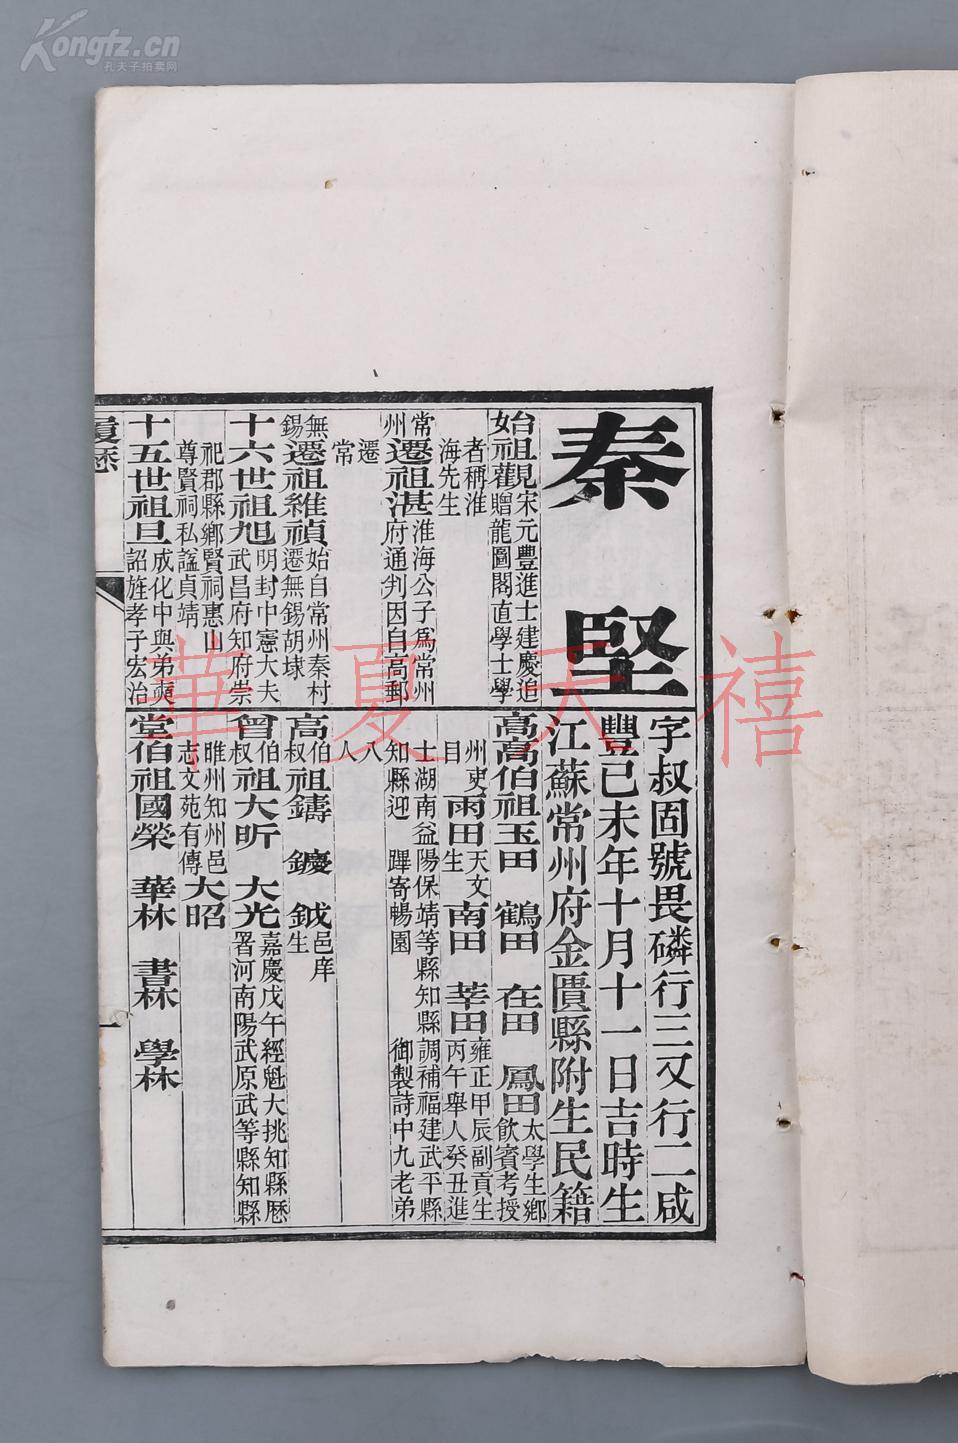 Kongfz.cn
孔夫子拍卖网
秦堅
字叔固號畏磷行三又行二咸
豐己未年十月十一日吉時生
江蘇常州府金匱縣附生民籍
始祖觀宋元豐進士建慶進
贈龍圖閣直學士學
者稱淮
海先生
常州遷祖湛淮海公子爲常州
府通判因自高郵
遷
常
無錫遷祖維禎始自常州秦村
遷無錫胡埭
十六世祖旭明封中憲大夫
武昌府知府崇
祀郡縣鄉賢祠惠山
尊賢祠私謚貞靖
十五世祖旦成化中與弟奭
詔旌孝子宏治
高高伯祖玉田 鶴田 在田 鳳田太學生鄉
飲賓考授
州吏
目
雨田天文
生
南田 莘田雍正甲辰副貢生
丙午舉人癸丑進
士湖南益陽保靖等縣知縣調補福建武平縣
知縣迎 蹕寄暢園 御製詩中九老弟
八
人
高伯叔祖鑄 鑁 鉞邑庠
生
曾伯叔祖大昕 大光嘉慶戊午經魁大挑知縣歷
署河南陽武原武等縣知縣
睢州知州邑
志文苑有傳
大昭
堂伯祖國榮 華林 書林 學林
履歷
一
華夏天禧